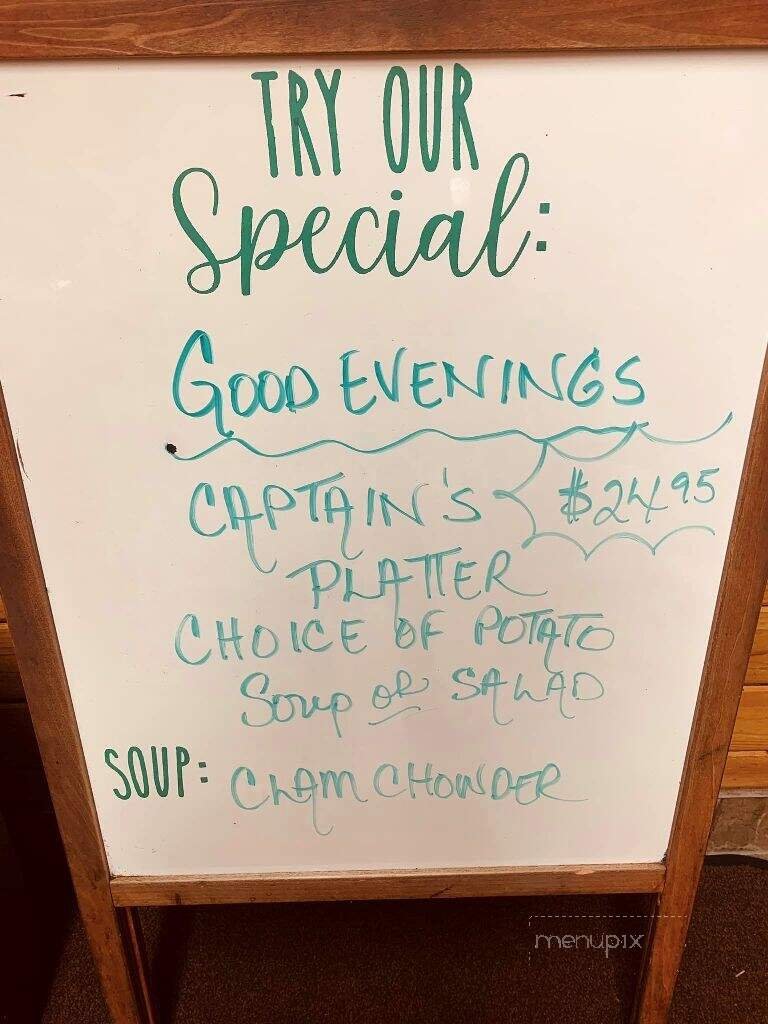 TRY OUR
Special:
GOOD EVENINGS
CAPTAIN'S $24.95
PLATTER
CHOICE OF POTATO
Soup OR SALAD
SOUP: CLAM CHOWDER
menupix